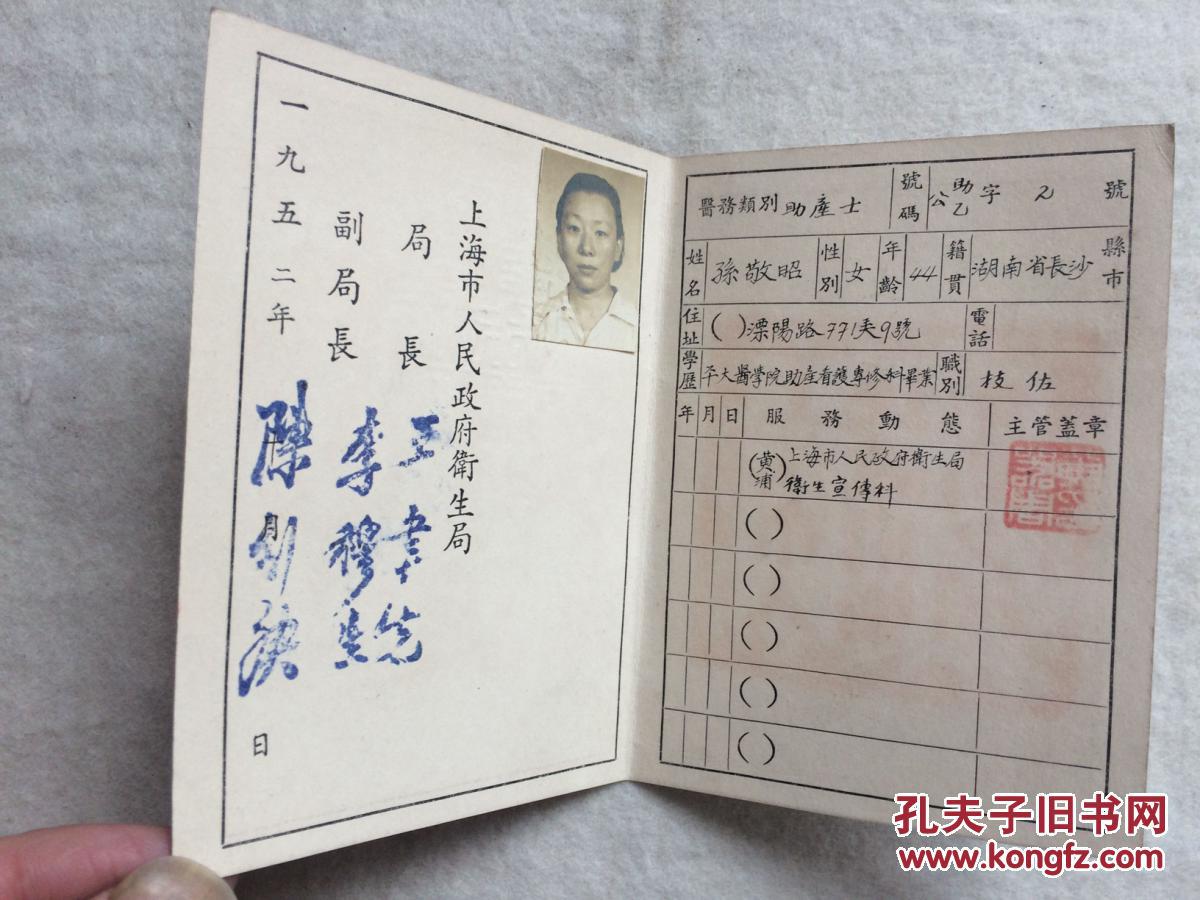 上海市人民政府衛生局
局 長 王聿先
副局長 李穆生
一九五二年 月 日
醫務類別 助產士 號碼 公助乙字 2 號
姓名 孫敬昭 性別 女 年齡 44 籍貫 湖南省長沙 縣市
住址 ( ) 溧陽路771弄9號 電話
學歷 平大醫學院助產看護專修科畢業 職別 技佐
年 月 日 服務動態 主管蓋章
(黄浦) 上海市人民政府衛生局
衛生宣傳科
( )
( )
( )
( )
( )
孔夫子旧书网
www.kongfz.com